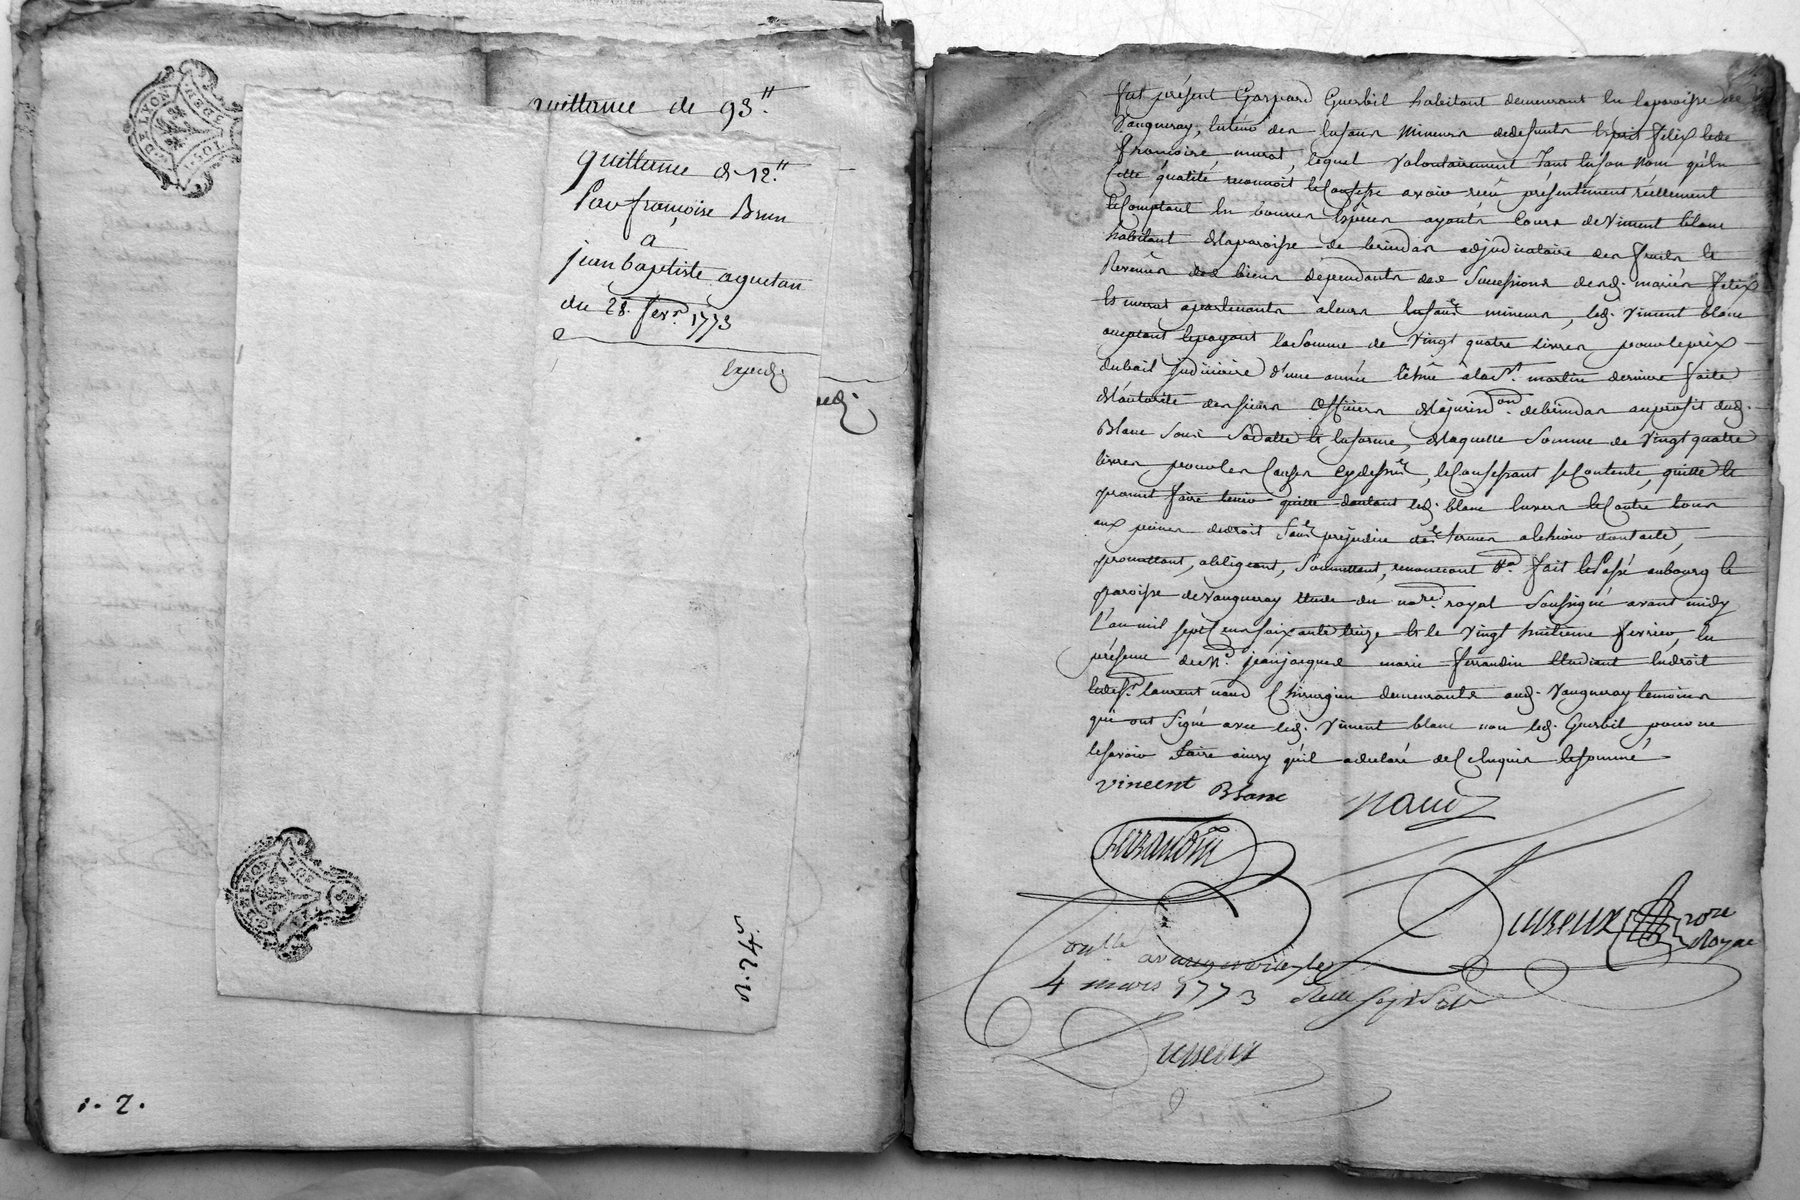 DE LYON
quittance de 93.tt
quittance de 12.tt
Par françoise Brun
a
jean baptiste aguetan
du 28. fevr. 1773
Expedié
edié.
n. 24.
GE. DE LYON
1. 2.
fut présent Gaspard Guerbil habitant demeurant en la paroisse de
Vaugneray, tuteur des enfans mineurs de defunts Felix
françoise murat, lequel volontairement tant en son nom qu'en
cette qualité reconnoit et confesse avoir reçu présentement réellement
et comptant en bonnes espèces ayants cours de Vincent blanc
habitant de la paroisse de brindas adjudicataire des fruits et
Revenus des biens dépendants des successions desd. mariés Felix
et murat apartenants à leurs enfans mineurs, led. Vincent blanc
acceptant et payant la somme de vingt quatre livres pour le prix
du bail judiciaire d'une année échüe à la St. martin derniere faite
de l'autorité des sieurs officiers de la jurison. de brindas au profit dud.
Blanc sous sa datte et en forme, de laquelle somme de vingt quatre
livres pour les causes cy dessus, le confessant se contente, quitte et
promet faire tenir quitte d'autant led. blanc envers et contre tous
aux peines de droit sans préjudice des termes a echoir d'untacte,
promettant, obligeant, soumettant, renonçant &a. fait et passé au bourg et
paroisse de Vaugneray étude du nore. royal soussigné avant midy
l'an mil sept cens soixante treize et le vingt huitieme fevrier, en
présence de Mr. jean jacques marie ferrandin étudiant en droit
et de sr. laurent naud chirurgien demeurants aud. Vaugneray temoins
qui ont signé avec led. Vincent blanc non led. Guerbil pour ne
le savoir faire ainsy qu'il a déclaré de ce enquis et sommé
Vincent Blanc
naud
ferrandin
Dusseux nore
Royal
Conllé a vaugneray le
4 mars 1773 Reçu sept s.
Dusseux